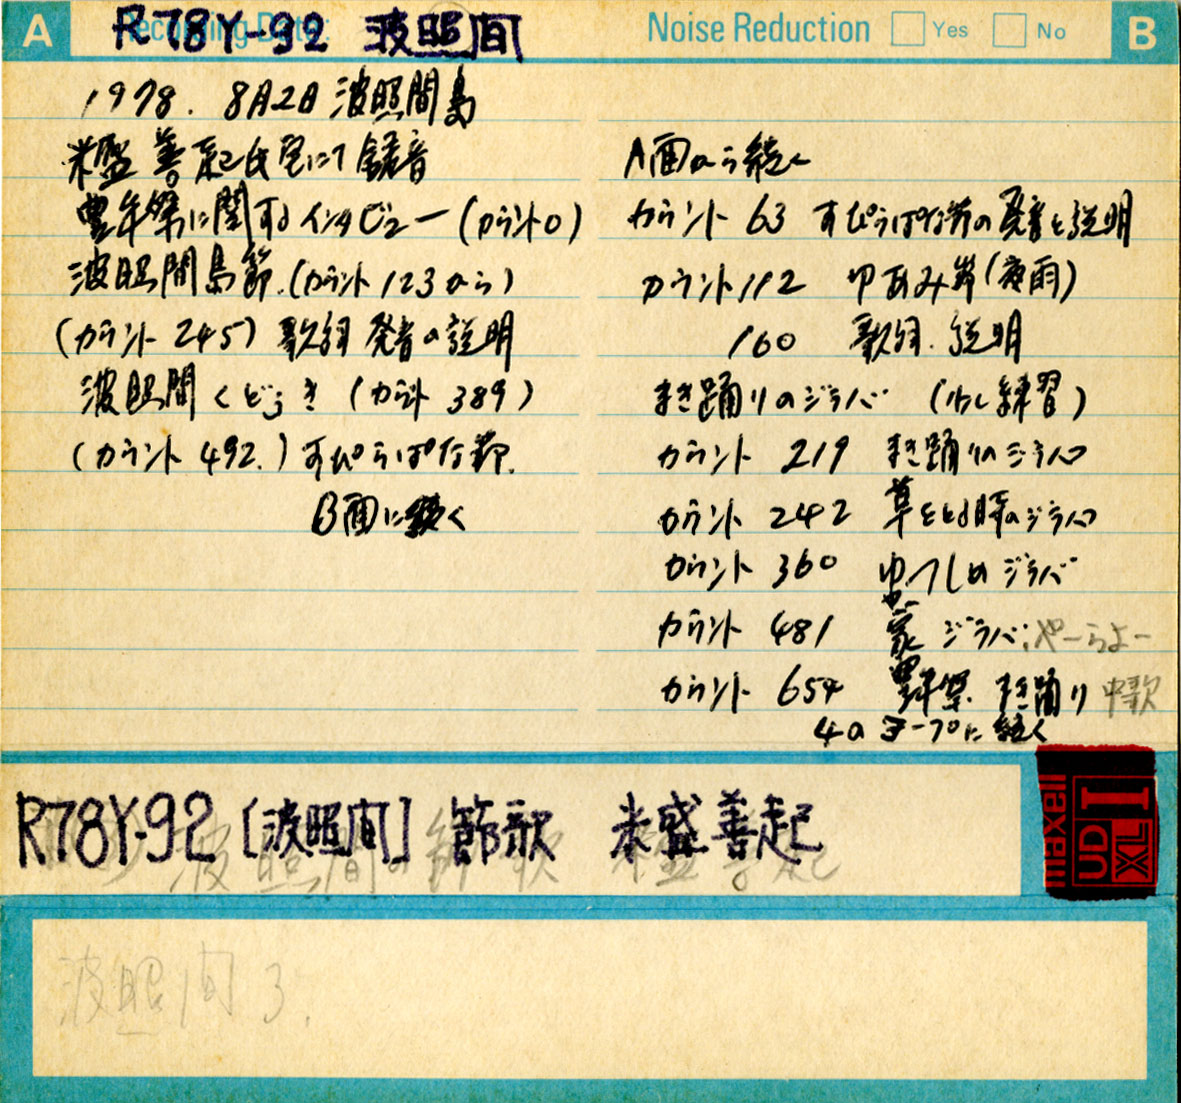 A
Recording Date:
R78Y-92 波照间
Noise Reduction
Yes
No
B
1978. 8月2日 波照間島
米盛善起氏宅にて録音
豊年祭に関するインタビュー(カウント0)
波照間島節.(カウント123から)
(カウント 245) 歌詞 発音の説明
波照間くどぅき (カウント 389)
(カウント 492.) すぴらぱな節.
B面に続く
A面から続く
カウント 63 すぴらぱな節の発音と説明
カウント112 ゆあみ節(夜雨)
160 歌詞. 説明
まき踊りのジラバ (少し練習)
カウント 219 まき踊りのジラバ
カウント 242 草をとる時のジラバ
カウント 360 ジラバ
カウント 481 家 ジラバ. やーらよー
カウント 654 豊年祭. まき踊り 中歌
4のテープに続く
R78Y-92 [波照间] 節歌 米盛善起
波照間の節歌 米盛善起
maxell
UD
XL
I
波照间 3.